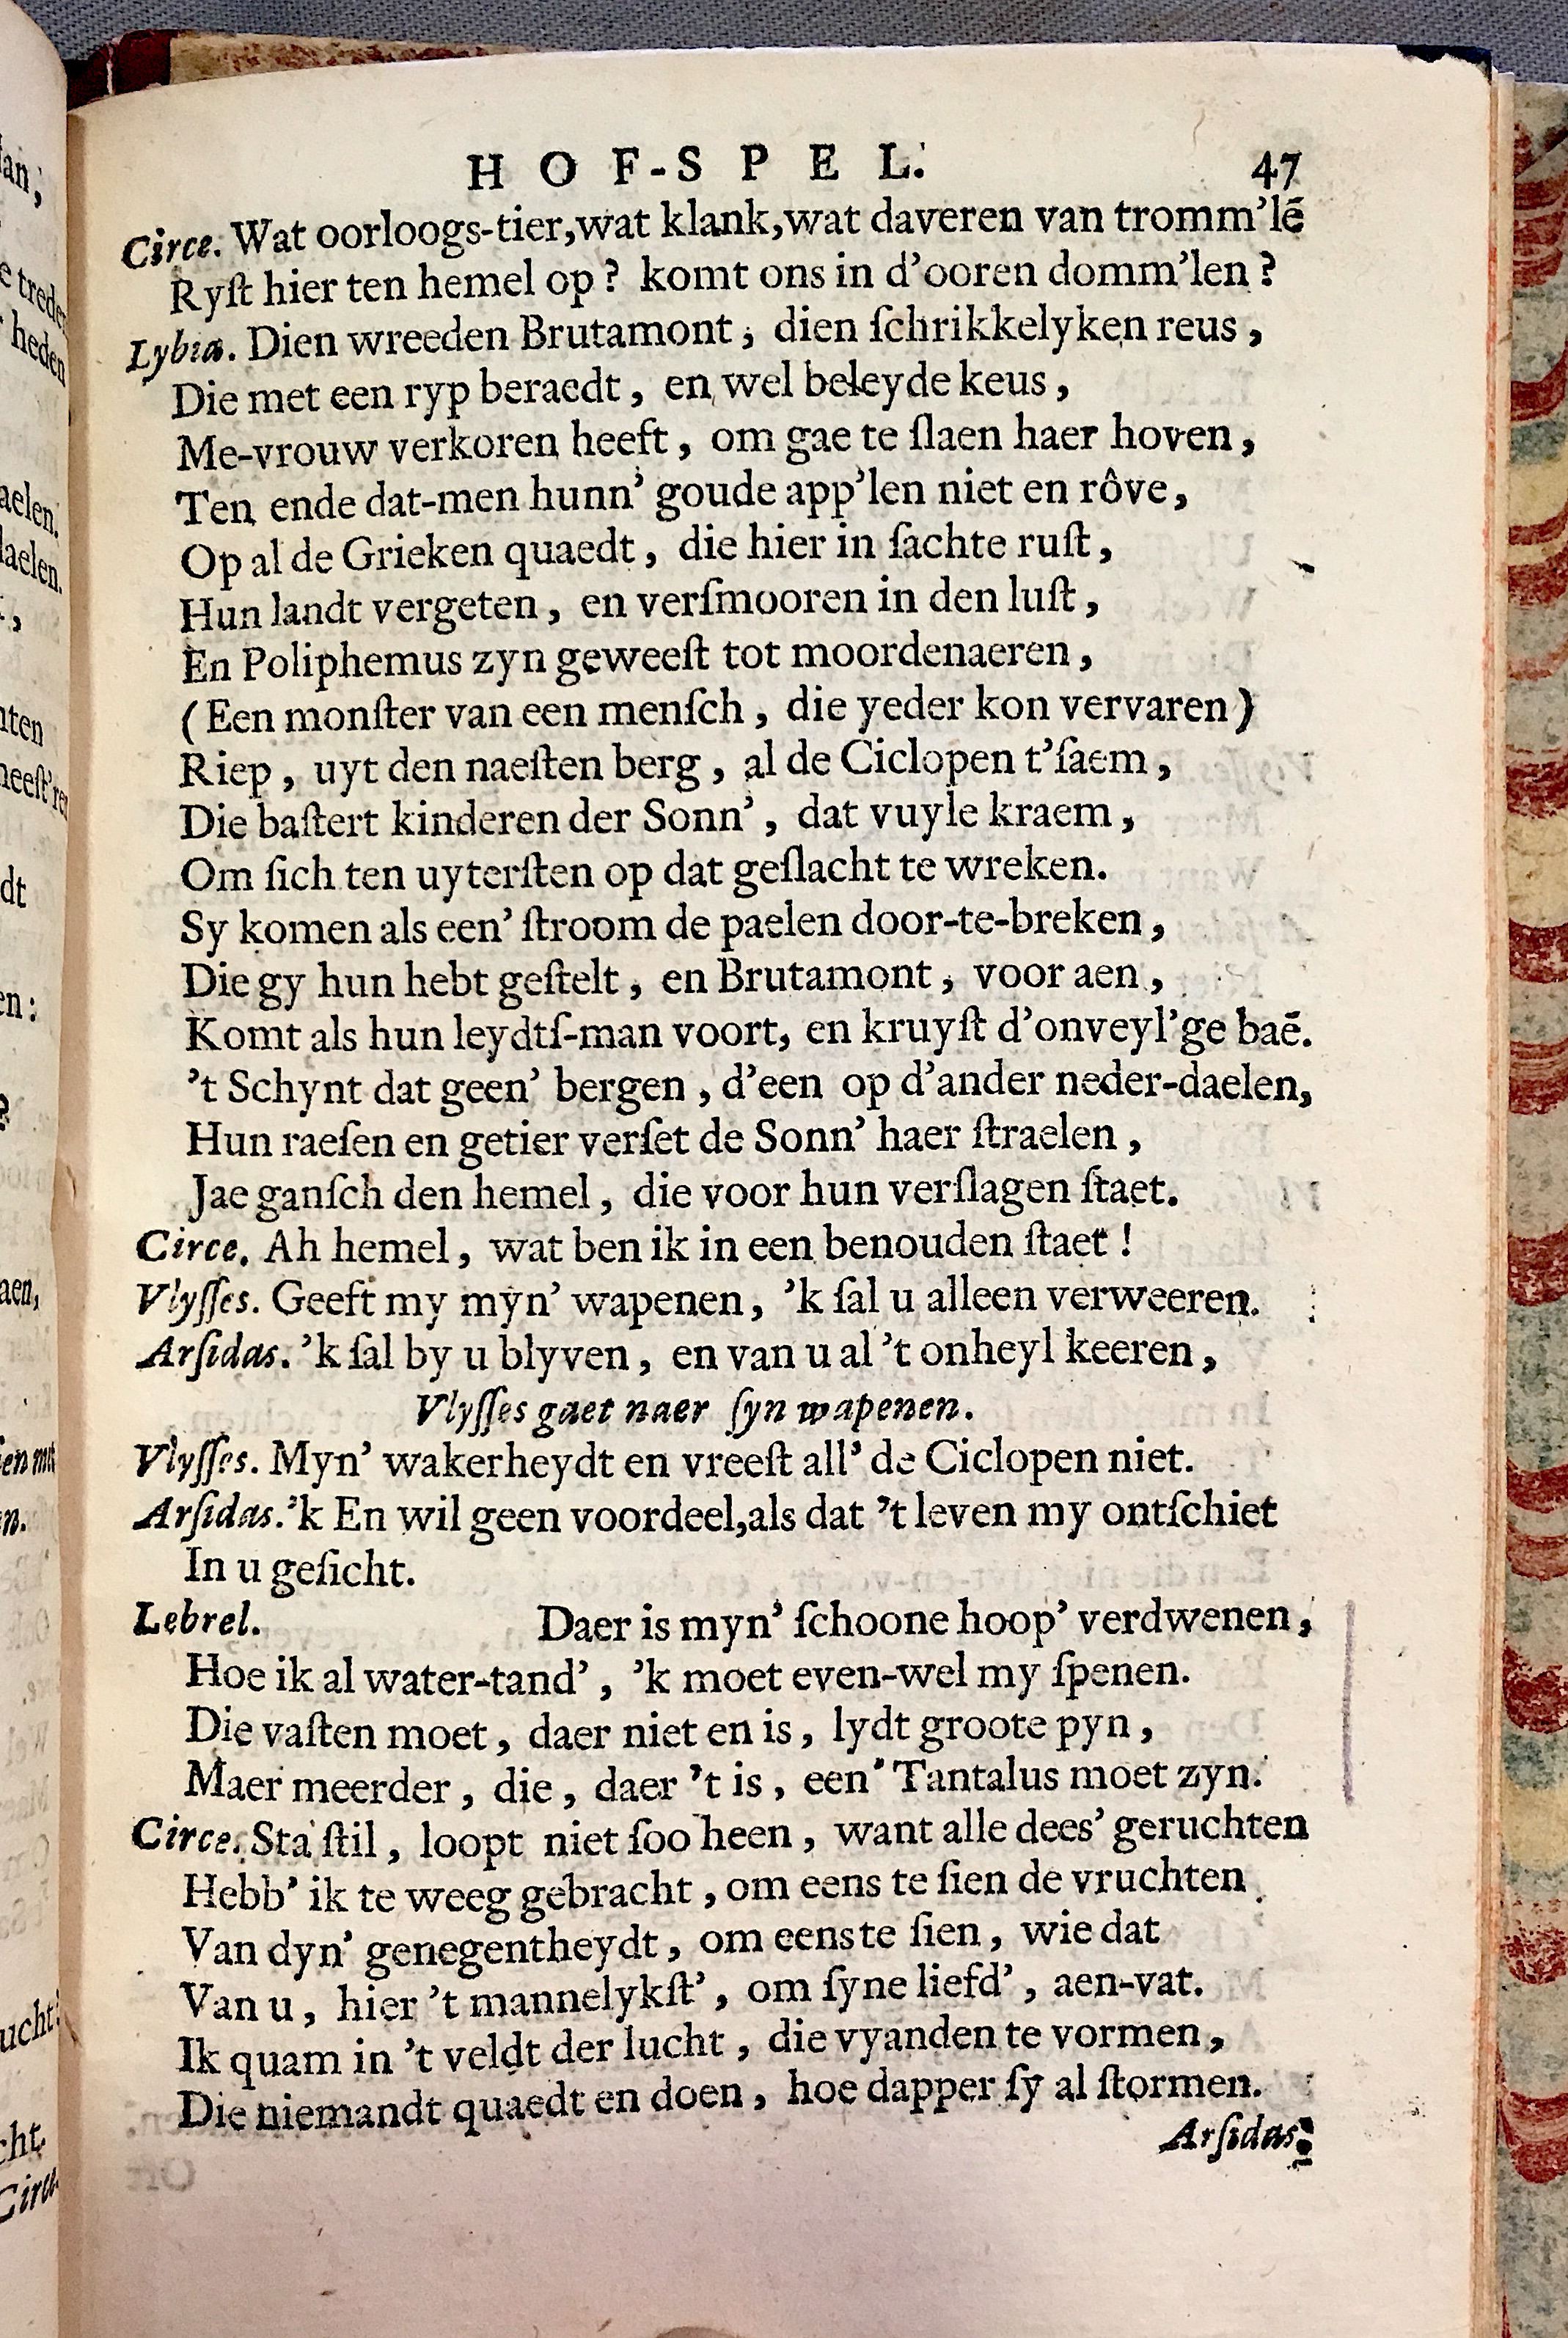 HOF-SPEL. 47
Circe. Wat oorloogs-tier, wat klank, wat daveren van tromm'lē
Ryſt hier ten hemel op? komt ons in d'ooren domm'len?
Lybia. Dien wreeden Brutamont, dien ſchrikkelyken reus,
Die met een ryp beraedt, en wel beleyde keus,
Me-vrouw verkoren heeft, om gae te ſlaen haer hoven,
Ten ende dat-men hunn' goude app'len niet en rôve,
Op al de Grieken quaedt, die hier in ſachte ruſt,
Hun landt vergeten, en verſmooren in den luſt,
En Poliphemus zyn geweeſt tot moordenaeren,
(Een monſter van een menſch, die yeder kon vervaren)
Riep, uyt den naeſten berg, al de Ciclopen t'ſaem,
Die baſtert kinderen der Sonn', dat vuyle kraem,
Om ſich ten uyterſten op dat geſlacht te wreken.
Sy komen als een' ſtroom de paelen door-te-breken,
Die gy hun hebt geſtelt, en Brutamont, voor aen,
Komt als hun leydtſ-man voort, en kruyſt d'onveyl'ge baē.
't Schynt dat geen' bergen, d'een op d'ander neder-daelen,
Hun raeſen en getier verſet de Sonn' haer ſtraelen,
Jae ganſch den hemel, die voor hun verſlagen ſtaet.
Circe. Ah hemel, wat ben ik in een benouden ſtaet!
Vlyſſes. Geeft my myn' wapenen, 'k ſal u alleen verweeren.
Arſidas. 'k ſal by u blyven, en van u al 't onheyl keeren,
Vlyſſes gaet naer ſyn wapenen.
Vlyſſes. Myn' wakerheydt en vreeſt all' de Ciclopen niet.
Arſidas. 'k En wil geen voordeel, als dat 't leven my ontſchiet
In u geſicht.
Lebrel. Daer is myn' ſchoone hoop' verdwenen,
Hoe ik al water-tand', 'k moet even-wel my ſpenen.
Die vaſten moet, daer niet en is, lydt groote pyn,
Maer meerder, die, daer 't is, een' Tantalus moet zyn.
Circe. Sta ſtil, loopt niet ſoo heen, want alle dees' geruchten
Hebb' ik te weeg gebracht, om eens te ſien de vruchten
Van dyn' genegentheydt, om eens te ſien, wie dat
Van u, hier 't mannelykſt', om ſyne liefd', aen-vat.
Ik quam in 't veldt der lucht, die vyanden te vormen,
Die niemandt quaedt en doen, hoe dapper ſy al ſtormen.
Arſidas.